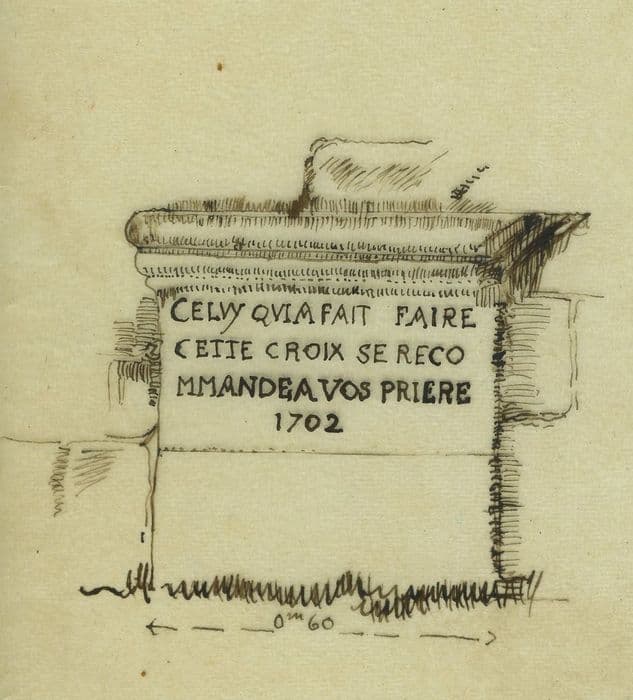 CELVY QVIA FAIT FAIRE
CETTE CROIX SE RECO
MMANDEAVOS PRIERE
1702
0m60